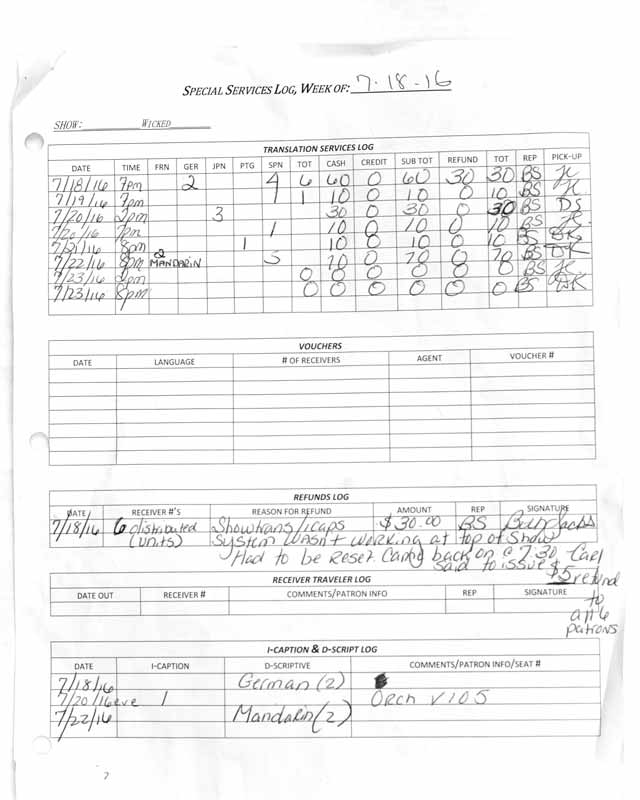 SPECIAL SERVICES LOG, WEEK OF: 7-18-16
SHOW: WICKED
TRANSLATION SERVICES LOG
DATE TIME FRN GER JPN PTG SPN TOT CASH CREDIT SUB TOT REFUND TOT REP PICK-UP
7/18/16 7pm 2 4 6 60 0 60 30 30 BS JC
7/19/16 7pm 1 1 10 0 10 0 10 BS JC
7/20/16 2pm 3 30 0 30 0 30 BS DS
7/20/16 7pm 1 10 0 10 0 10 BS JC
7/21/16 8pm 1 10 0 10 0 10 BS
7/22/16 8pm 2 MANDARIN 5 70 0 70 0 70 BS DK
7/23/16 2pm 0 0 0 0 0 0 BS JC
7/23/16 8pm 0 0 0 0 0 0 BS DK
VOUCHERS
DATE LANGUAGE # OF RECEIVERS AGENT VOUCHER #
REFUNDS LOG
DATE RECEIVER #'S REASON FOR REFUND AMOUNT REP SIGNATURE
7/18/16 6 distributed Showtrans/icaps $30.00 BS
(units) System wasn't working at top of show
Had to be reset. Came back on @ 7:30 Carl
said to issue
$5 refund
to
all 6
patrons
RECEIVER TRAVELER LOG
DATE OUT RECEIVER # COMMENTS/PATRON INFO REP SIGNATURE
I-CAPTION & D-SCRIPT LOG
DATE I-CAPTION D-SCRIPTIVE COMMENTS/PATRON INFO/SEAT #
7/18/16 German (2)
7/20/16 eve 1 Orch V105
7/22/16 Mandarin (2)
7